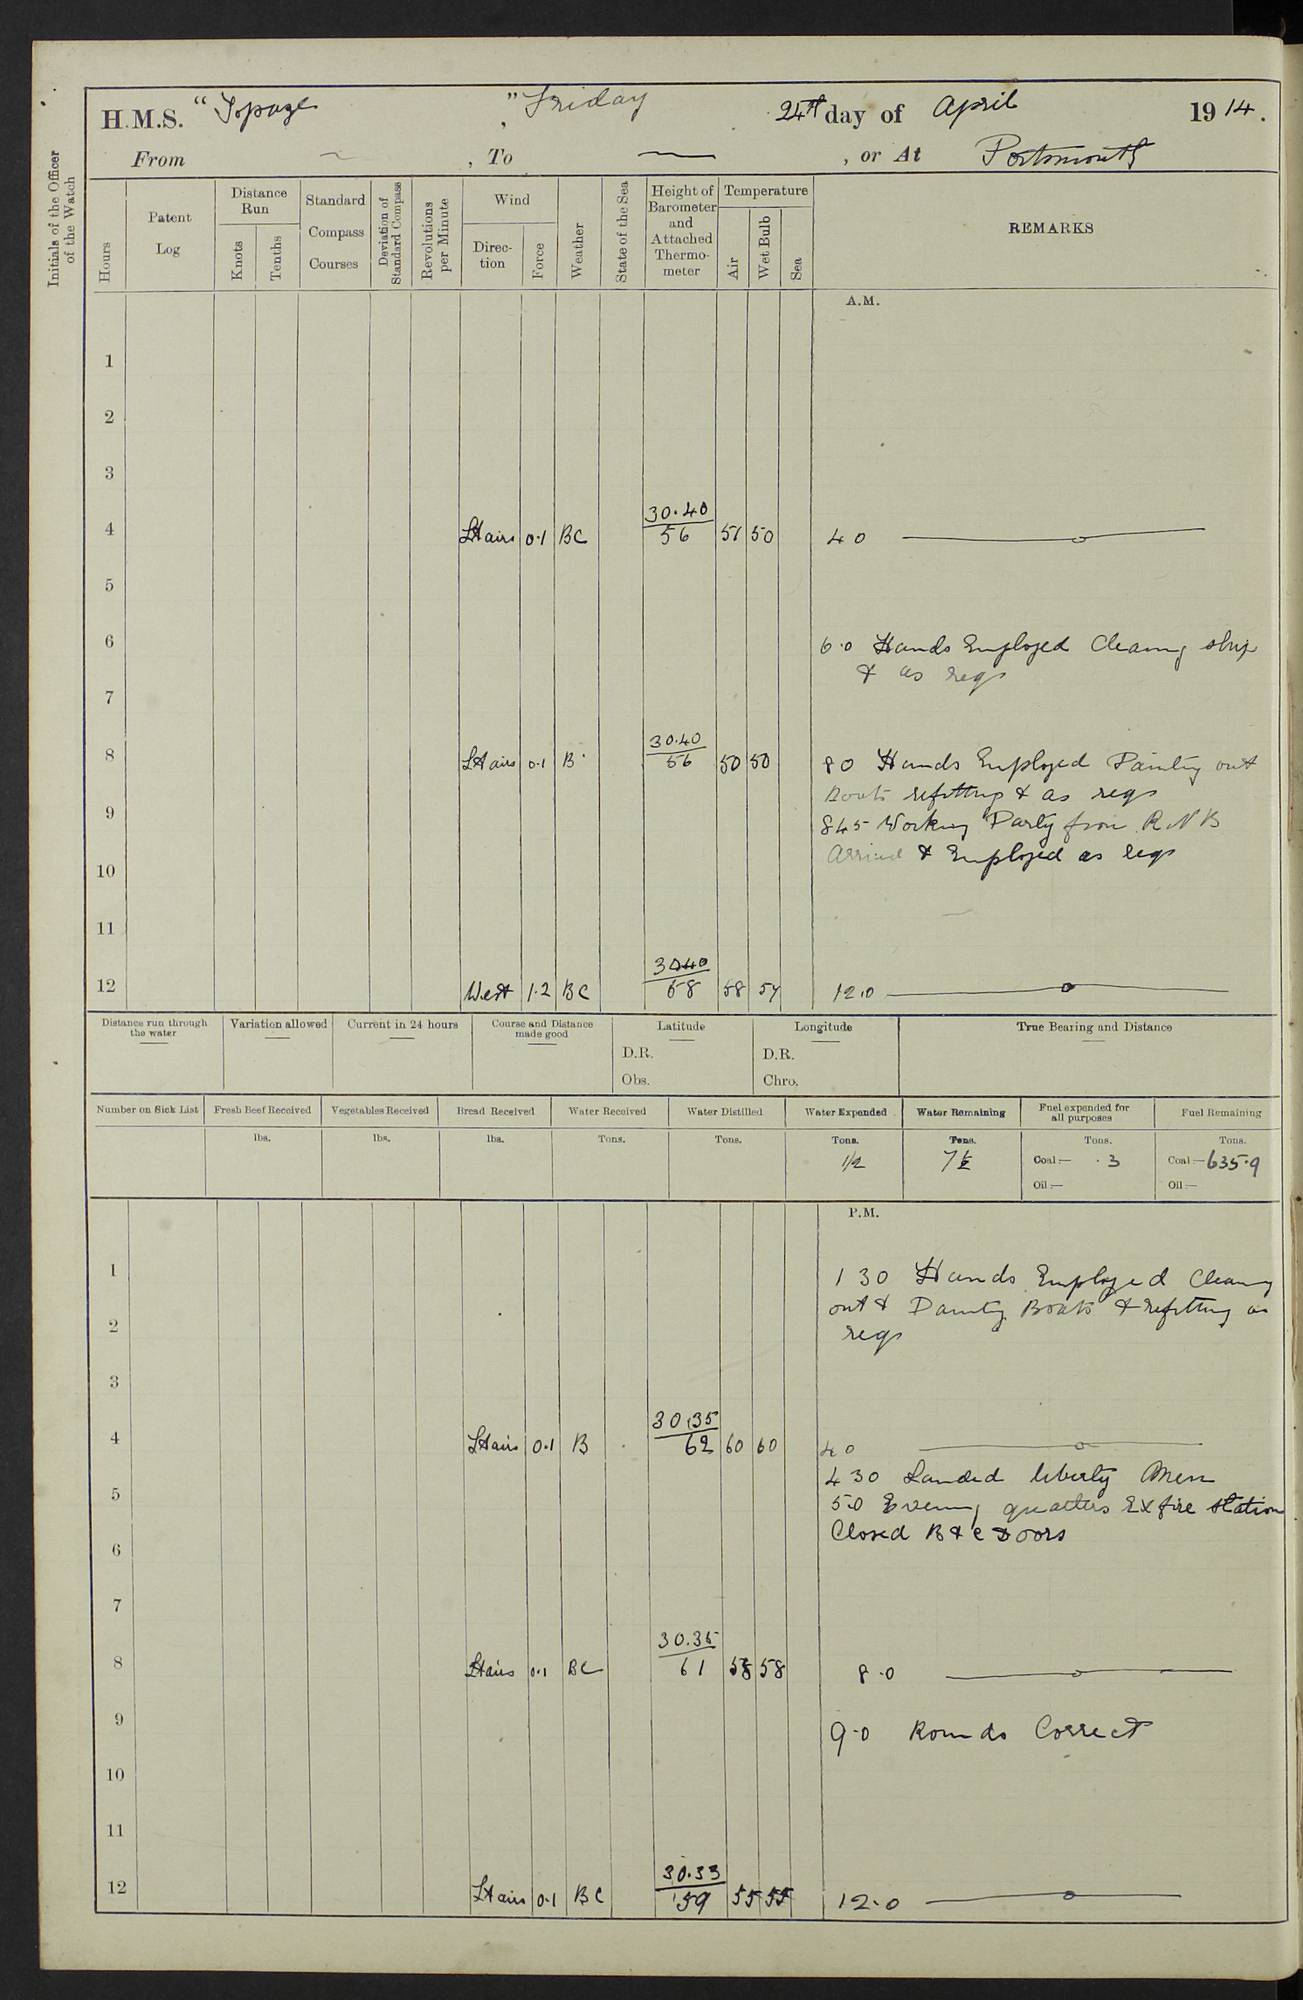 H.M.S. "Topaze", Friday 24th day of April 1914.
From ~, To —, or At Portsmouth
Initials of the Officer of the Watch
Hours
Patent Log
Distance Run
Knots
Tenths
Standard Compass Courses
Deviation of Standard Compass
Revolutions per Minute
Wind
Direction
Force
Weather
State of the Sea
Height of Barometer and Attached Thermometer
Temperature
Air
Wet Bulb
Sea
REMARKS
A.M.
1
2
3
4 Lt airs 0.1 BC 30.40 56 51 50 4 0 —o—
5
6 6.0 Hands Employed Cleaning ship
& as reqs
7
8 Lt airs 0.1 B 30.40 56 50 50 8 0 Hands Employed Painting out
Boats refitting & as reqs
9 845 Working Party from R N B
Arrived & Employed as reqs
10
11
12 West 1.2 BC 30.40 58 58 57 12.0 —o—
Distance run through the water
Variation allowed
Current in 24 hours
Course and Distance made good
Latitude
D.R.
Obs.
Longitude
D.R.
Chro.
True Bearing and Distance
Number on Sick List
Fresh Beef Received
lbs.
Vegetables Received
lbs.
Bread Received
lbs.
Water Received
Tons.
Water Distilled
Tons.
Water Expended
Tons.
1/2
Water Remaining
Tons.
7 1/2
Fuel expended for all purposes
Tons.
Coal:— .3
Oil:—
Fuel Remaining
Tons.
Coal:— 635.9
Oil:—
P.M.
1 1 30 Hands Employed Cleaning
out & Painting Boats & refitting as
2 reqs
3
4 Lt airs 0.1 B 30.35 62 60 60 4 0 —o—
4 30 Landed liberty Men
5 5.0 Evening quarters Ex fire station
Closed B & C Doors
6
7
8 Lt airs 0.1 BC 30.35 61 58 58 8.0 —o—
9 9.0 Rounds Correct
10
11
12 Lt airs 0.1 BC 30.33 59 55 55 12.0 —o—